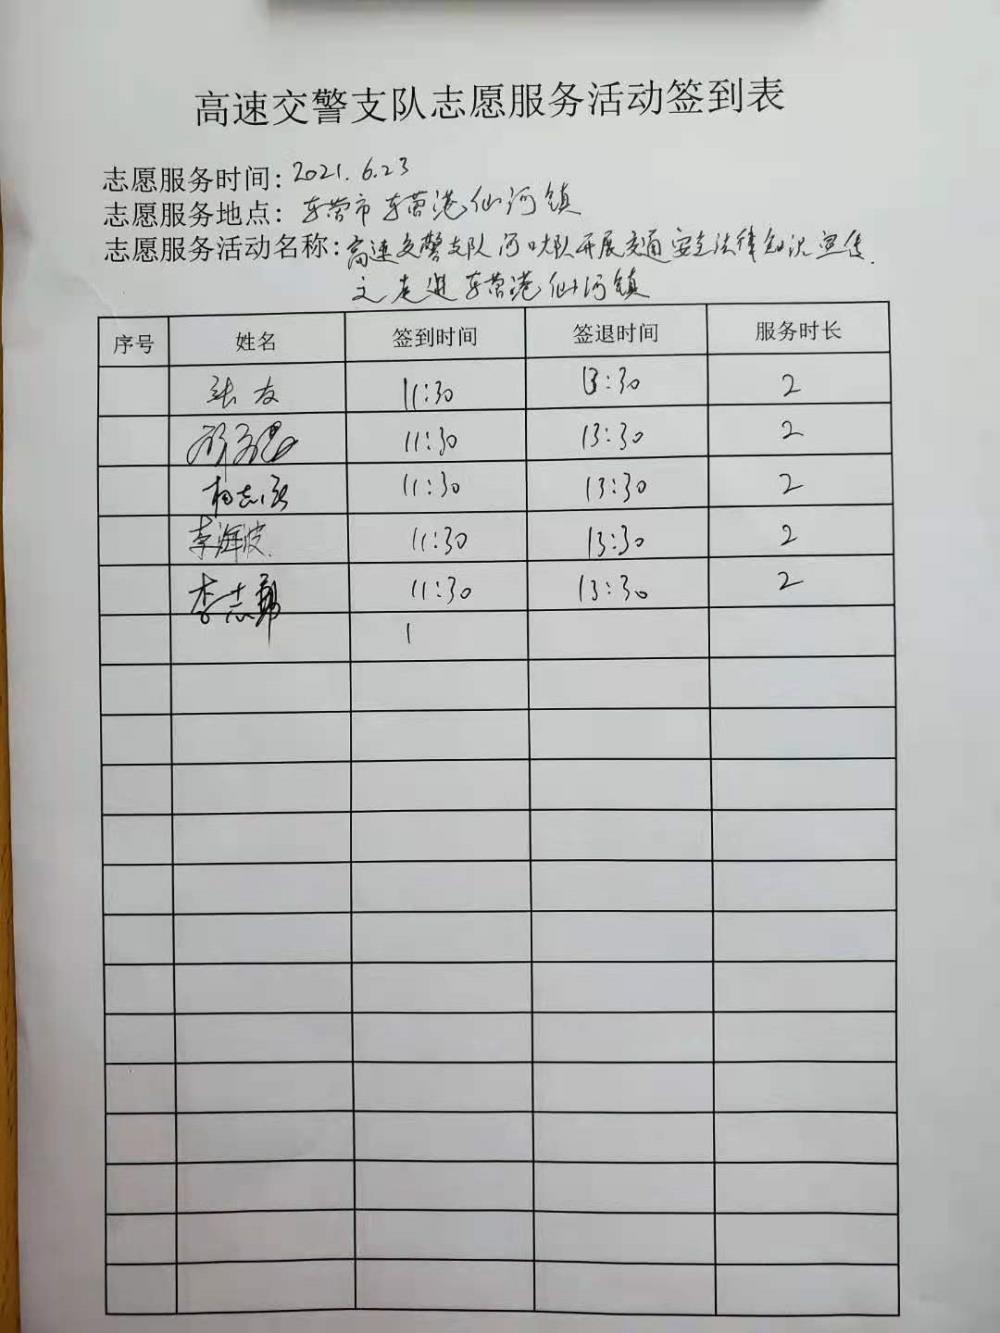 高速交警支队志愿服务活动签到表
志愿服务时间: 2021.6.23
志愿服务地点: 东营市东营港仙河镇
志愿服务活动名称: 高速交警支队河口大队开展交通安全法律知识宣传
之走进东营港仙河镇
序号 姓名 签到时间 签退时间 服务时长
张友 11:30 13:30 2
11:30 13:30 2
11:30 13:30 2
李海波 11:30 13:30 2
李志勇 11:30 13:30 2
1